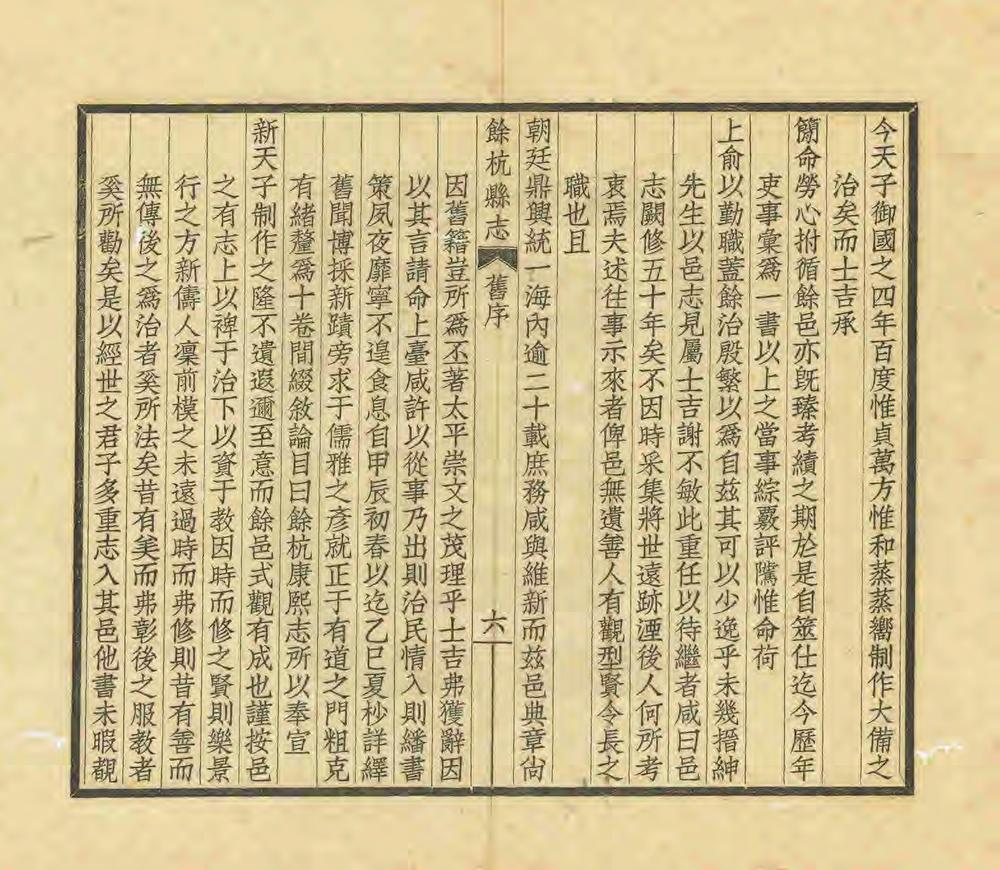 今天子御國之四年百度惟貞萬方惟和蒸蒸嚮制作大備之
治矣而士吉承
簡命勞心拊循餘邑亦旣臻考績之期於是自筮仕迄今歷年
吏事彙爲一書以上之當事綜覈評隲惟命荷
上俞以勤職蓋餘治殷繁以爲自茲其可以少逸乎未幾搢紳
先生以邑志見屬士吉謝不敏此重任以待繼者咸曰邑
志闕修五十年矣不因時采集將世遠跡湮後人何所考
衷焉夫述往事示來者俾邑無遺善人有觀型賢令長之
職也且
朝廷鼎興統一海內逾二十載庶務咸與維新而茲邑典章尙
餘杭縣志 舊序 六
因舊籍豈所爲丕著太平崇文之茂理乎士吉弗獲辭因
以其言請命上臺咸許以從事乃出則治民情入則繙書
策夙夜靡寧不遑食息自甲辰初春以迄乙巳夏杪詳繹
舊聞博採新蹟旁求于儒雅之彥就正于有道之門粗克
有緒釐爲十卷間綴敘論目曰餘杭康熙志所以奉宣
新天子制作之隆不遺遐邇至意而餘邑式觀有成也謹按邑
之有志上以裨于治下以資于教因時而修之賢則樂景
行之方新儔人凜前模之未遠過時而弗修則昔有善而
無傳後之爲治者奚所法矣昔有美而弗彰後之服教者
奚所勸矣是以經世之君子多重志入其邑他書未暇覩